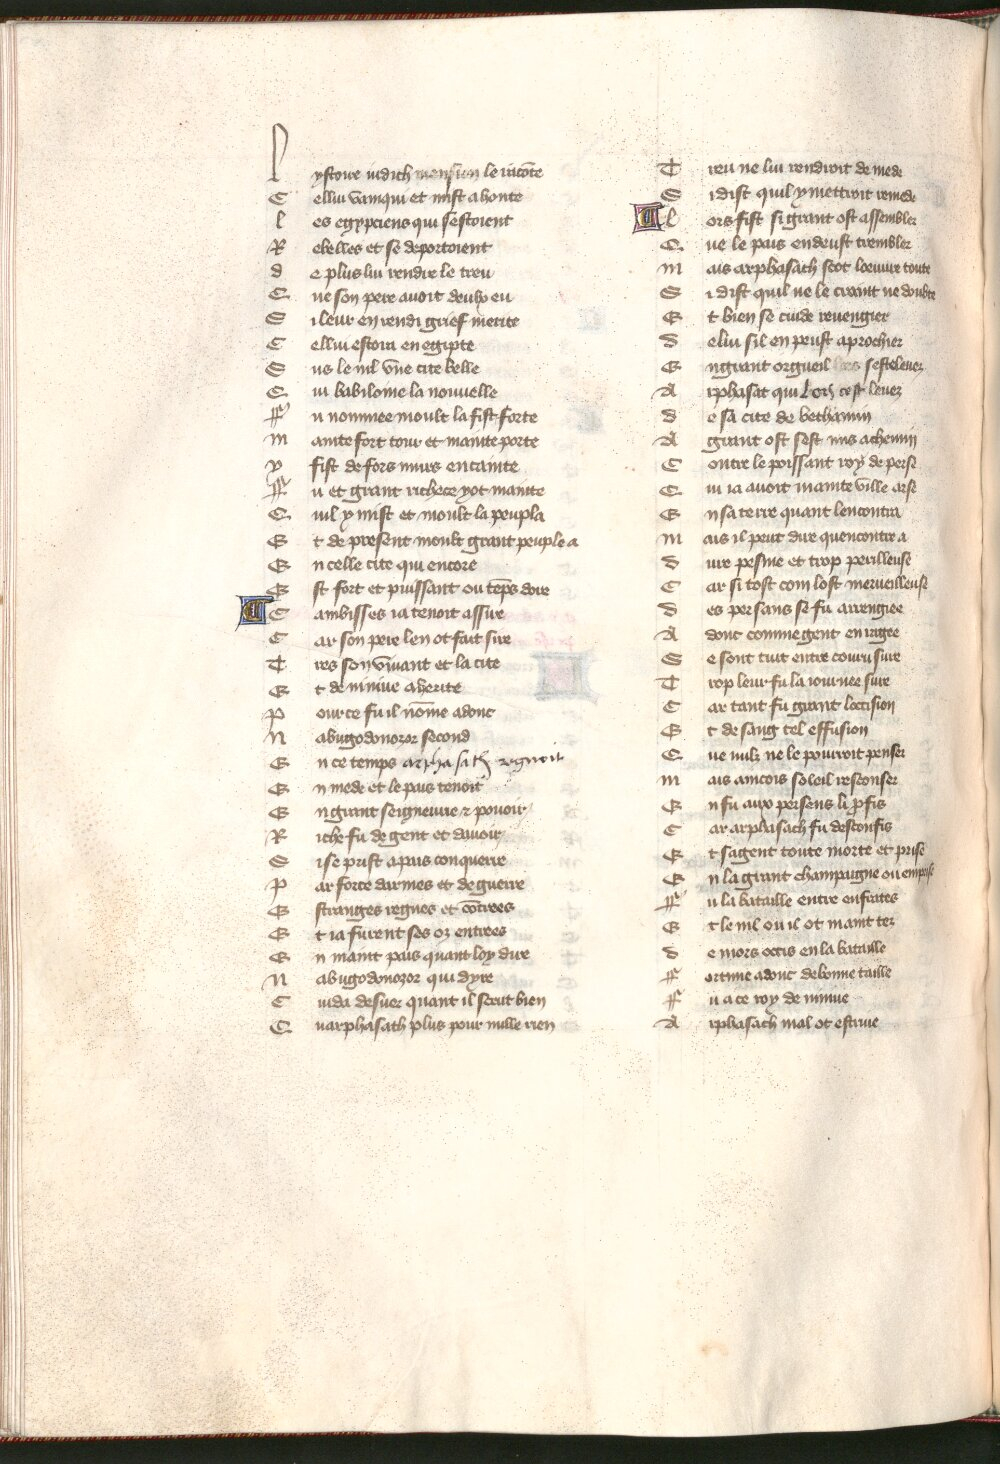 L ystoire iudich le racōte
C ellui vainqui et mist a honte
l es egypciens qui sestoient
R ebelles et se deportoient
d e plus lui rendre le treu
Q ue son pere auoit deulx eu
S i leur en rendi grief merite
C ellui estora en egipte
S us le nil vne cite belle
Q ui babiloine la nouuelle
ff u nommee moult la fist forte
m ainte fort tour et mainte porte
y fist de fors murs encainte
ff u et grant richece y ot mainte
Q uil y mist et moult la peupla
E t de present moult grant peuple a
E n celle cite qui encore
E st fort et puissant ou tēps dore
C ambisses ia tenoit assire
C ar son pere len ot fait sire
T res son viuant et la cite
E t de niniue a herite
P our ce fu il nōme adonc
N abugodonozor second
E n ce temps arphasath regnoit
E n mede et le pais tenoit
E n grant seigneurie & pouoir
R iche fu de gent et dauoir
S i se prist a puis conquerre
P ar force darmes et de guerre
E stranges regnes et cōtrees
E t ia furent ses oz entrees
E n maint pais quant loy dire
N abugodonozor qui dyre
C uida desuer quant il sceut bien
Q uarphasath plus pour nulle rien
T reu ne lui rendroit de mede
S i dist quil y mettroit remede
L ors fist si grant ost assembler
Q ue le pais en deust trembler
m ais arphasach scot loeuure toute
S i dist quil ne le craint ne doubte
E t bien se cuide reuengier
d e lui sil en peust aprochier
E n grant orgueil sest esleuez
A rphasat qui lors cest leuez
d e sa cite de bethanin
A grant ost sest mis a chemin
C ontre le poissant roy de perse
Q ui ia auoit mainte ville arse
E n sa terre quant lencontra
m ais il peut dire quencontre a
d ure pesme et trop perilleuse
C ar si tost com lost merueilleuse
d es persans se fu arrengiee
A donc comme gent enragee
S e sont tuit entre couru sure
T rop leur fu la iournee sure
C ar tant fu grant loccision
E t de sang tel effusion
Q ue nulz ne le pourroit penser
m ais aincois soleil resconser
E n fu aux persens li p̄fis
C ar arphasach fu desconfis
E t sa gent toute morte et prise
E n la grant champaigne ou emprise
ff u la bataille entre eufrates
E t le nil ou il ot maint tez
d e mors occis en la bataille
ff ortune adonc de bonne taille
ff u a ce roy de niniue
A rphasach mal ot estriue